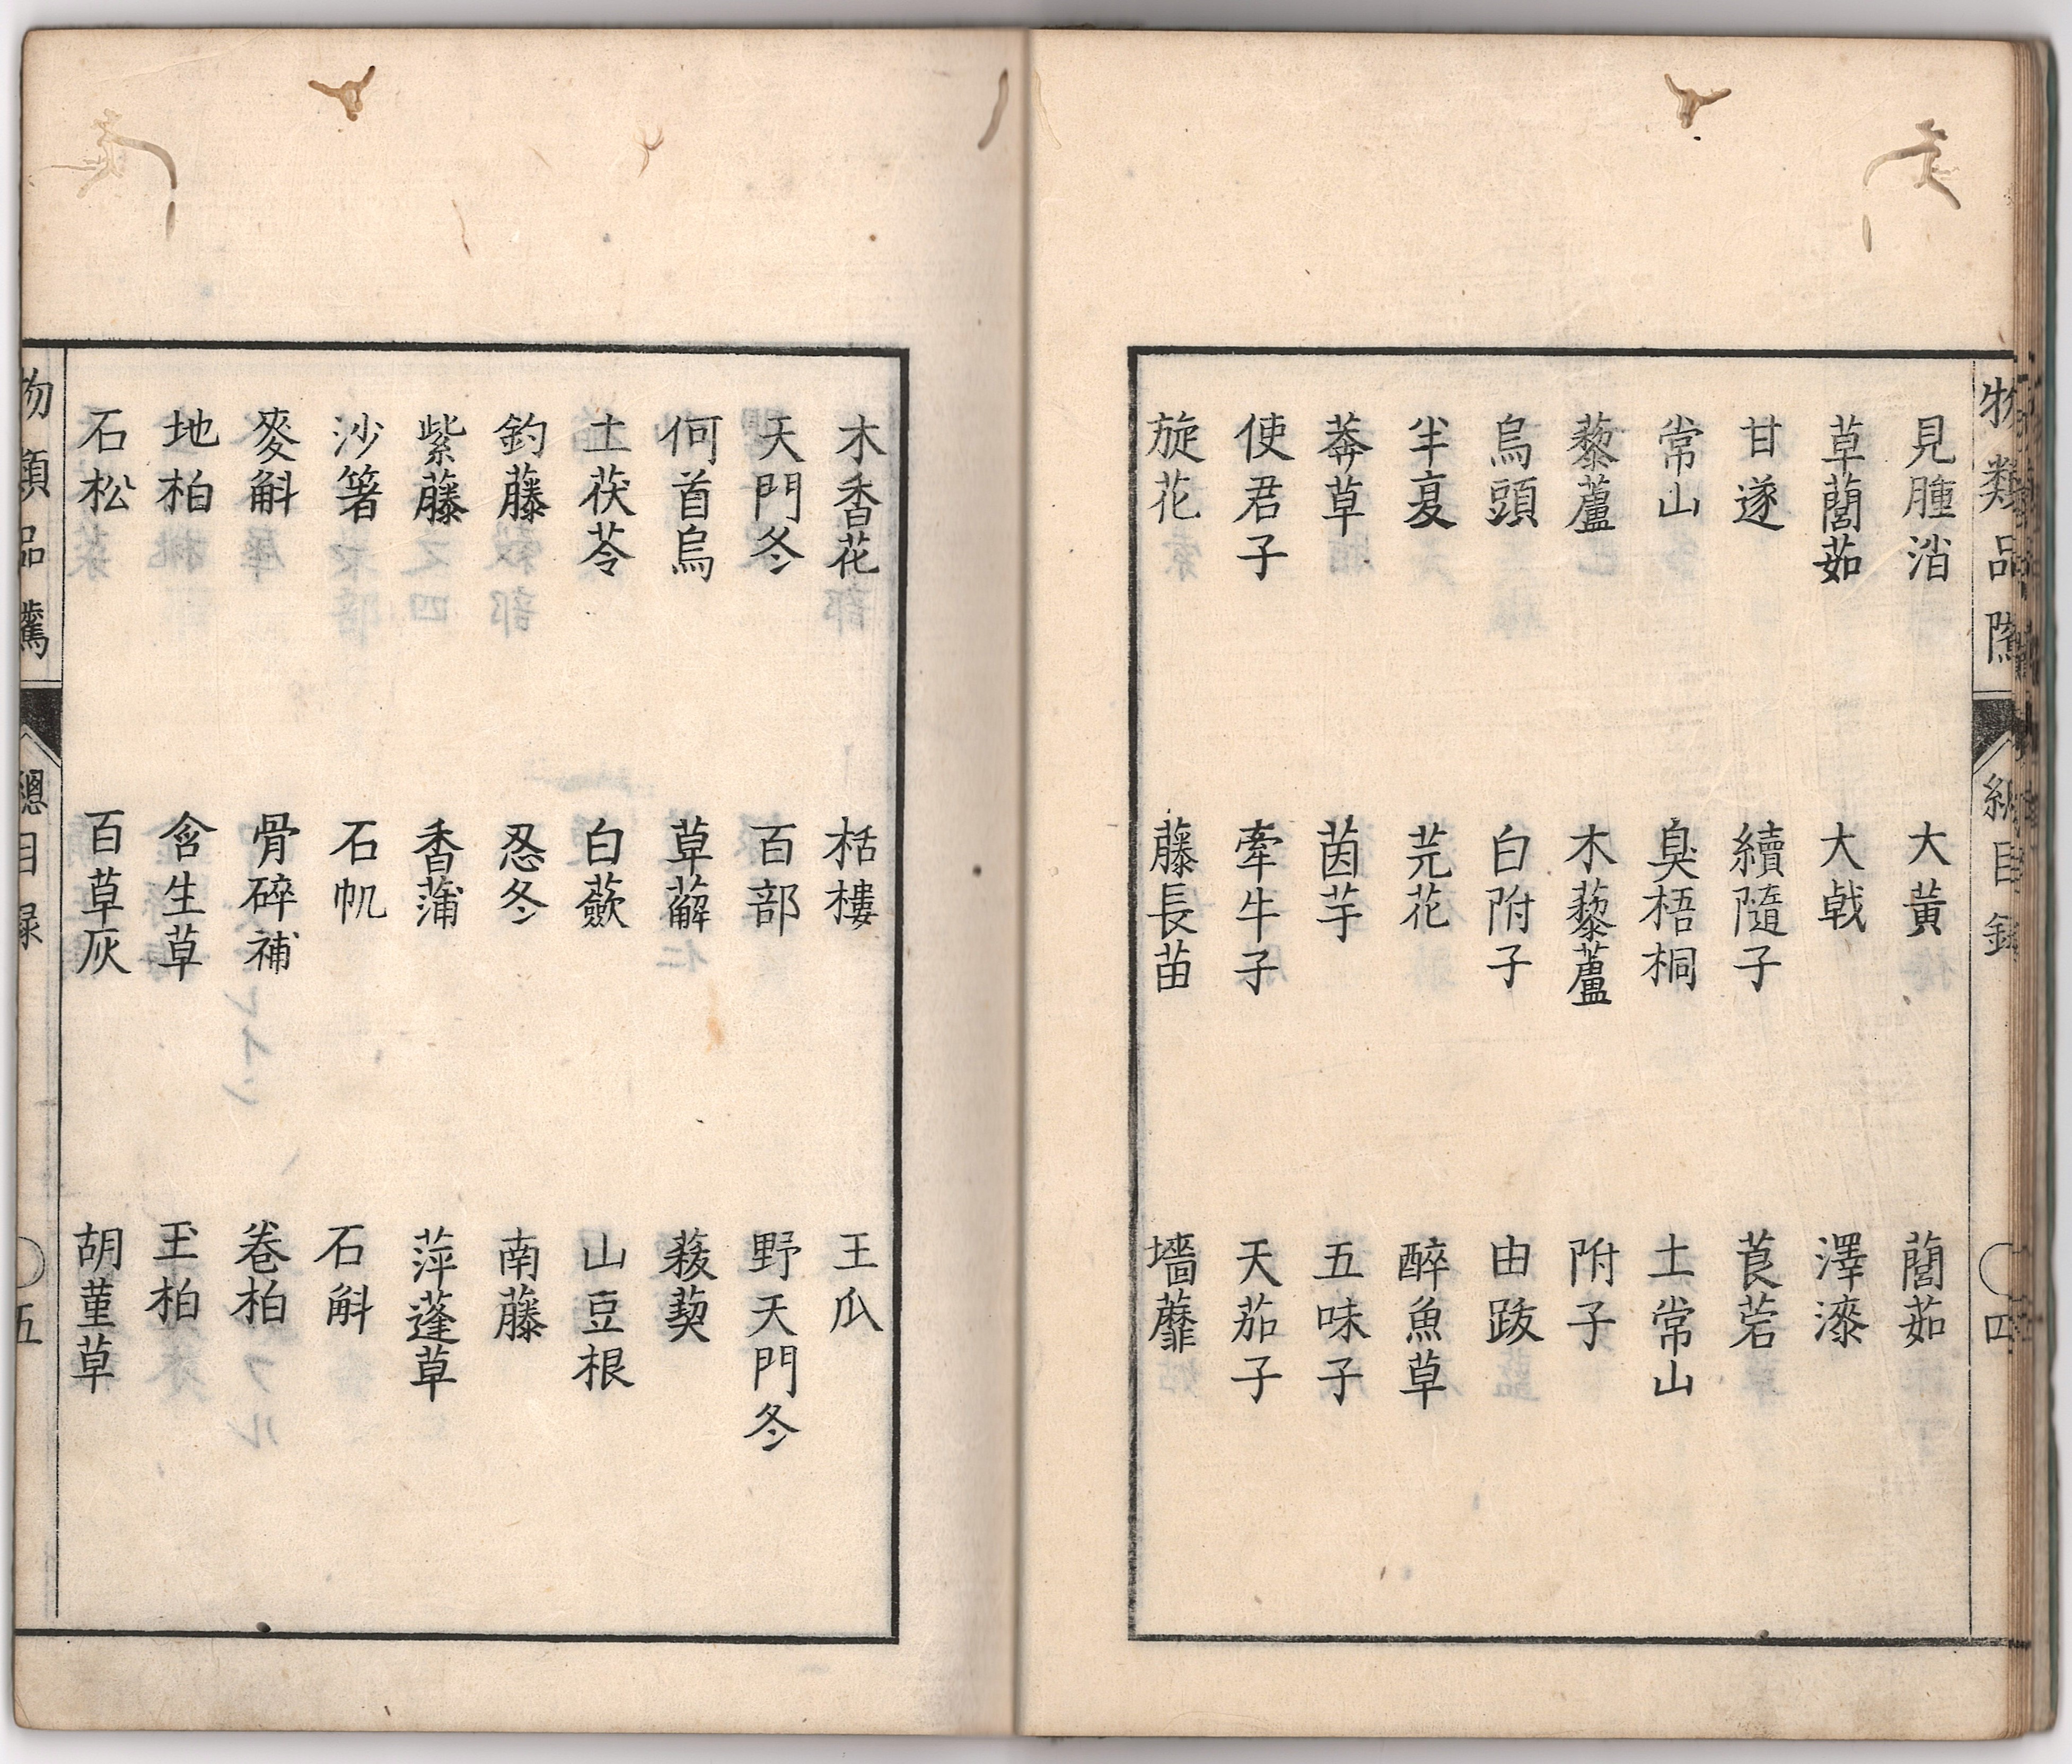 物類品隲 總目録 ○四
見腫消 大黄 䕡茹
草䕡茹 大戟 澤漆
甘遂 續隨子 莨菪
常山 臭梧桐 土常山
藜蘆 木藜蘆 附子
烏頭 白附子 由跋
半夏 芫花 醉魚草
莽草 茵芋 五味子
使君子 牽牛子 天茄子
旋花 藤長苗 墻蘼
木香花 栝樓 王瓜
天門冬 百部 野天門冬
何首烏 萆薢 菝葜
土茯苓 白蘞 山豆根
釣藤 忍冬 南藤
紫藤 香蒲 萍蓬草
沙箸 石帆 石斛
麥斛 骨碎補 卷柏
地柏 含生草 玉柏
石松 百草灰 胡菫草
物類品隲 總目録 ○五